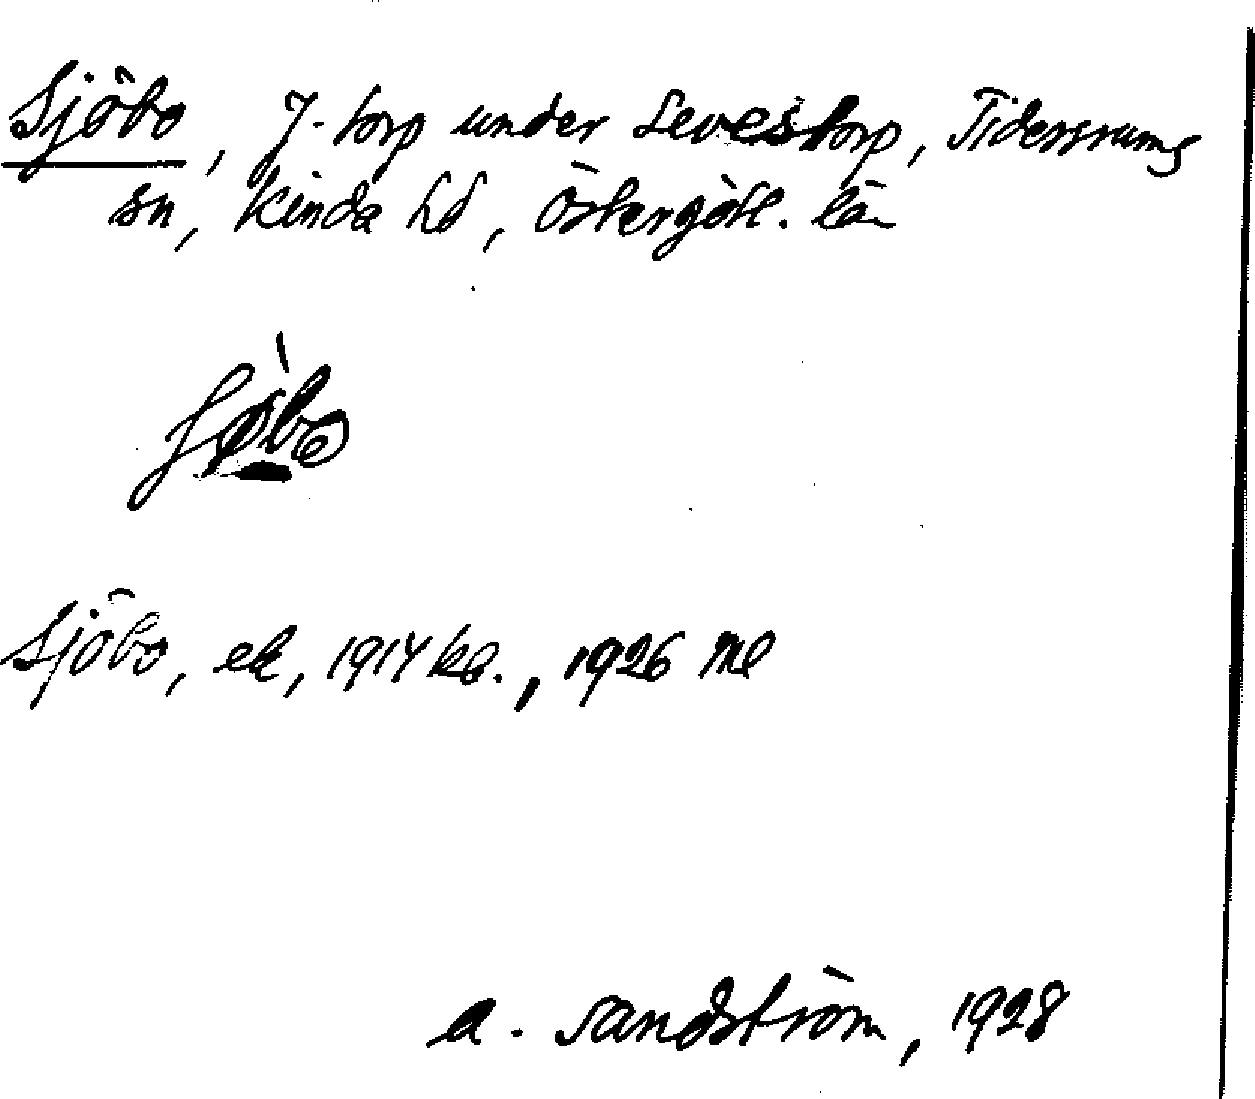 Sjöbo, J. torp under Sevestorp, Tidersrums
sn, Kinda hd, Östergötl. län
Sjöbo, ek, 1914 kb., 1926 ml
A. Sandström, 1928